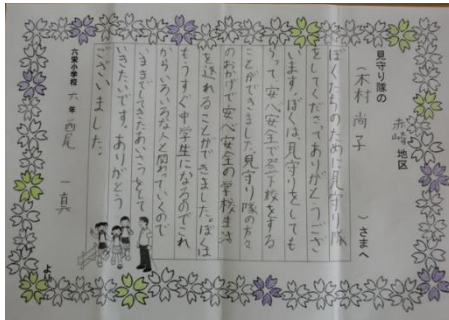 見守り隊の
赤崎 地区
(木村 尚子 )さまへ
ぼくたちのために見守り隊
をしてくださってありがとうござ
います。ぼくは、見守りをしても
らって、安心安全で登下校をする
ことができました。見守り隊の方々
のおかげで安心安全の学校生活
を送れることができました。ぼくは
もうすぐ中学生になるのでこれ
からいろいろな人と関わっていくので
いままでしてきたあいさつをして
いきたいです。ありがとう
ございました。
六栄小学校 六 年 西尾 一真
より